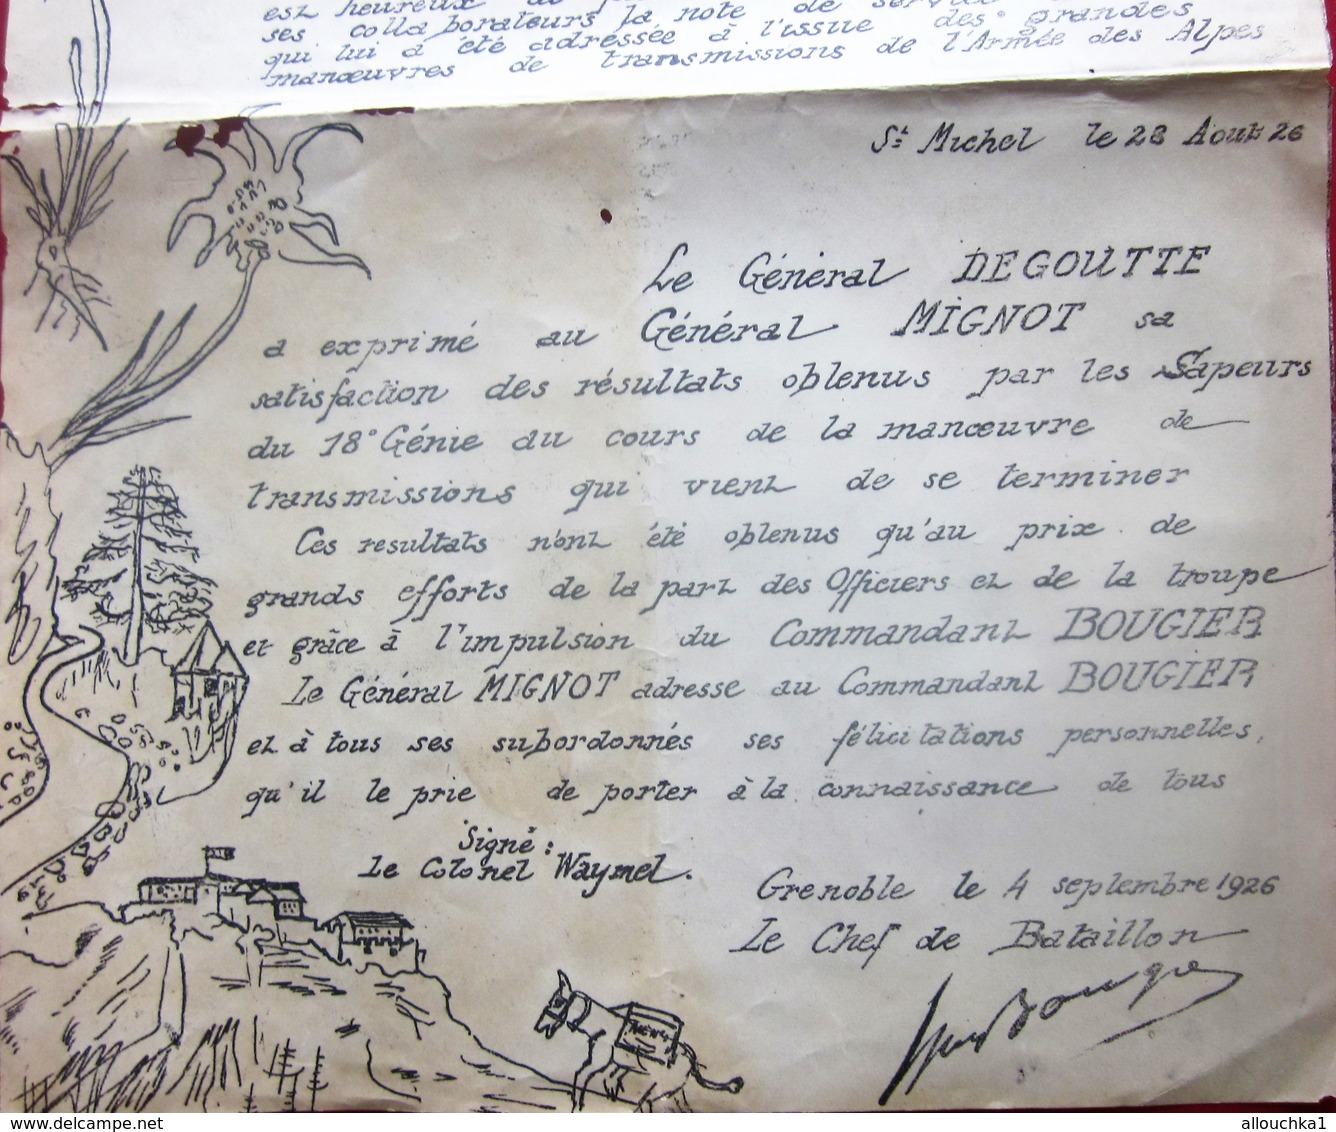 est heureux de
ses collaborateurs la note de service
qui lui a été adressée à l'issue des grandes
manœuvres de transmissions de l'Armée des Alpes
St Michel le 28 Aout 26
Le Général DEGOUTTE
a exprimé au Général MIGNOT sa
satisfaction des résultats obtenus par les Sapeurs
du 18° Génie au cours de la manœuvre de
transmissions qui vient de se terminer
Ces resultats n'ont été obtenus qu'au prix de
grands efforts de la part des Officiers et de la troupe
et grâce à l'impulsion du Commandant BOUGIER
Le Général MIGNOT adresse au Commandant BOUGIER
et à tous ses subordonnés ses félicitations personnelles,
qu'il le prie de porter à la connaissance de tous
Signé :
Le Colonel Waymel.
Grenoble le 4 septembre 1926
Le Chef de Bataillon
Bougier
allouchka1